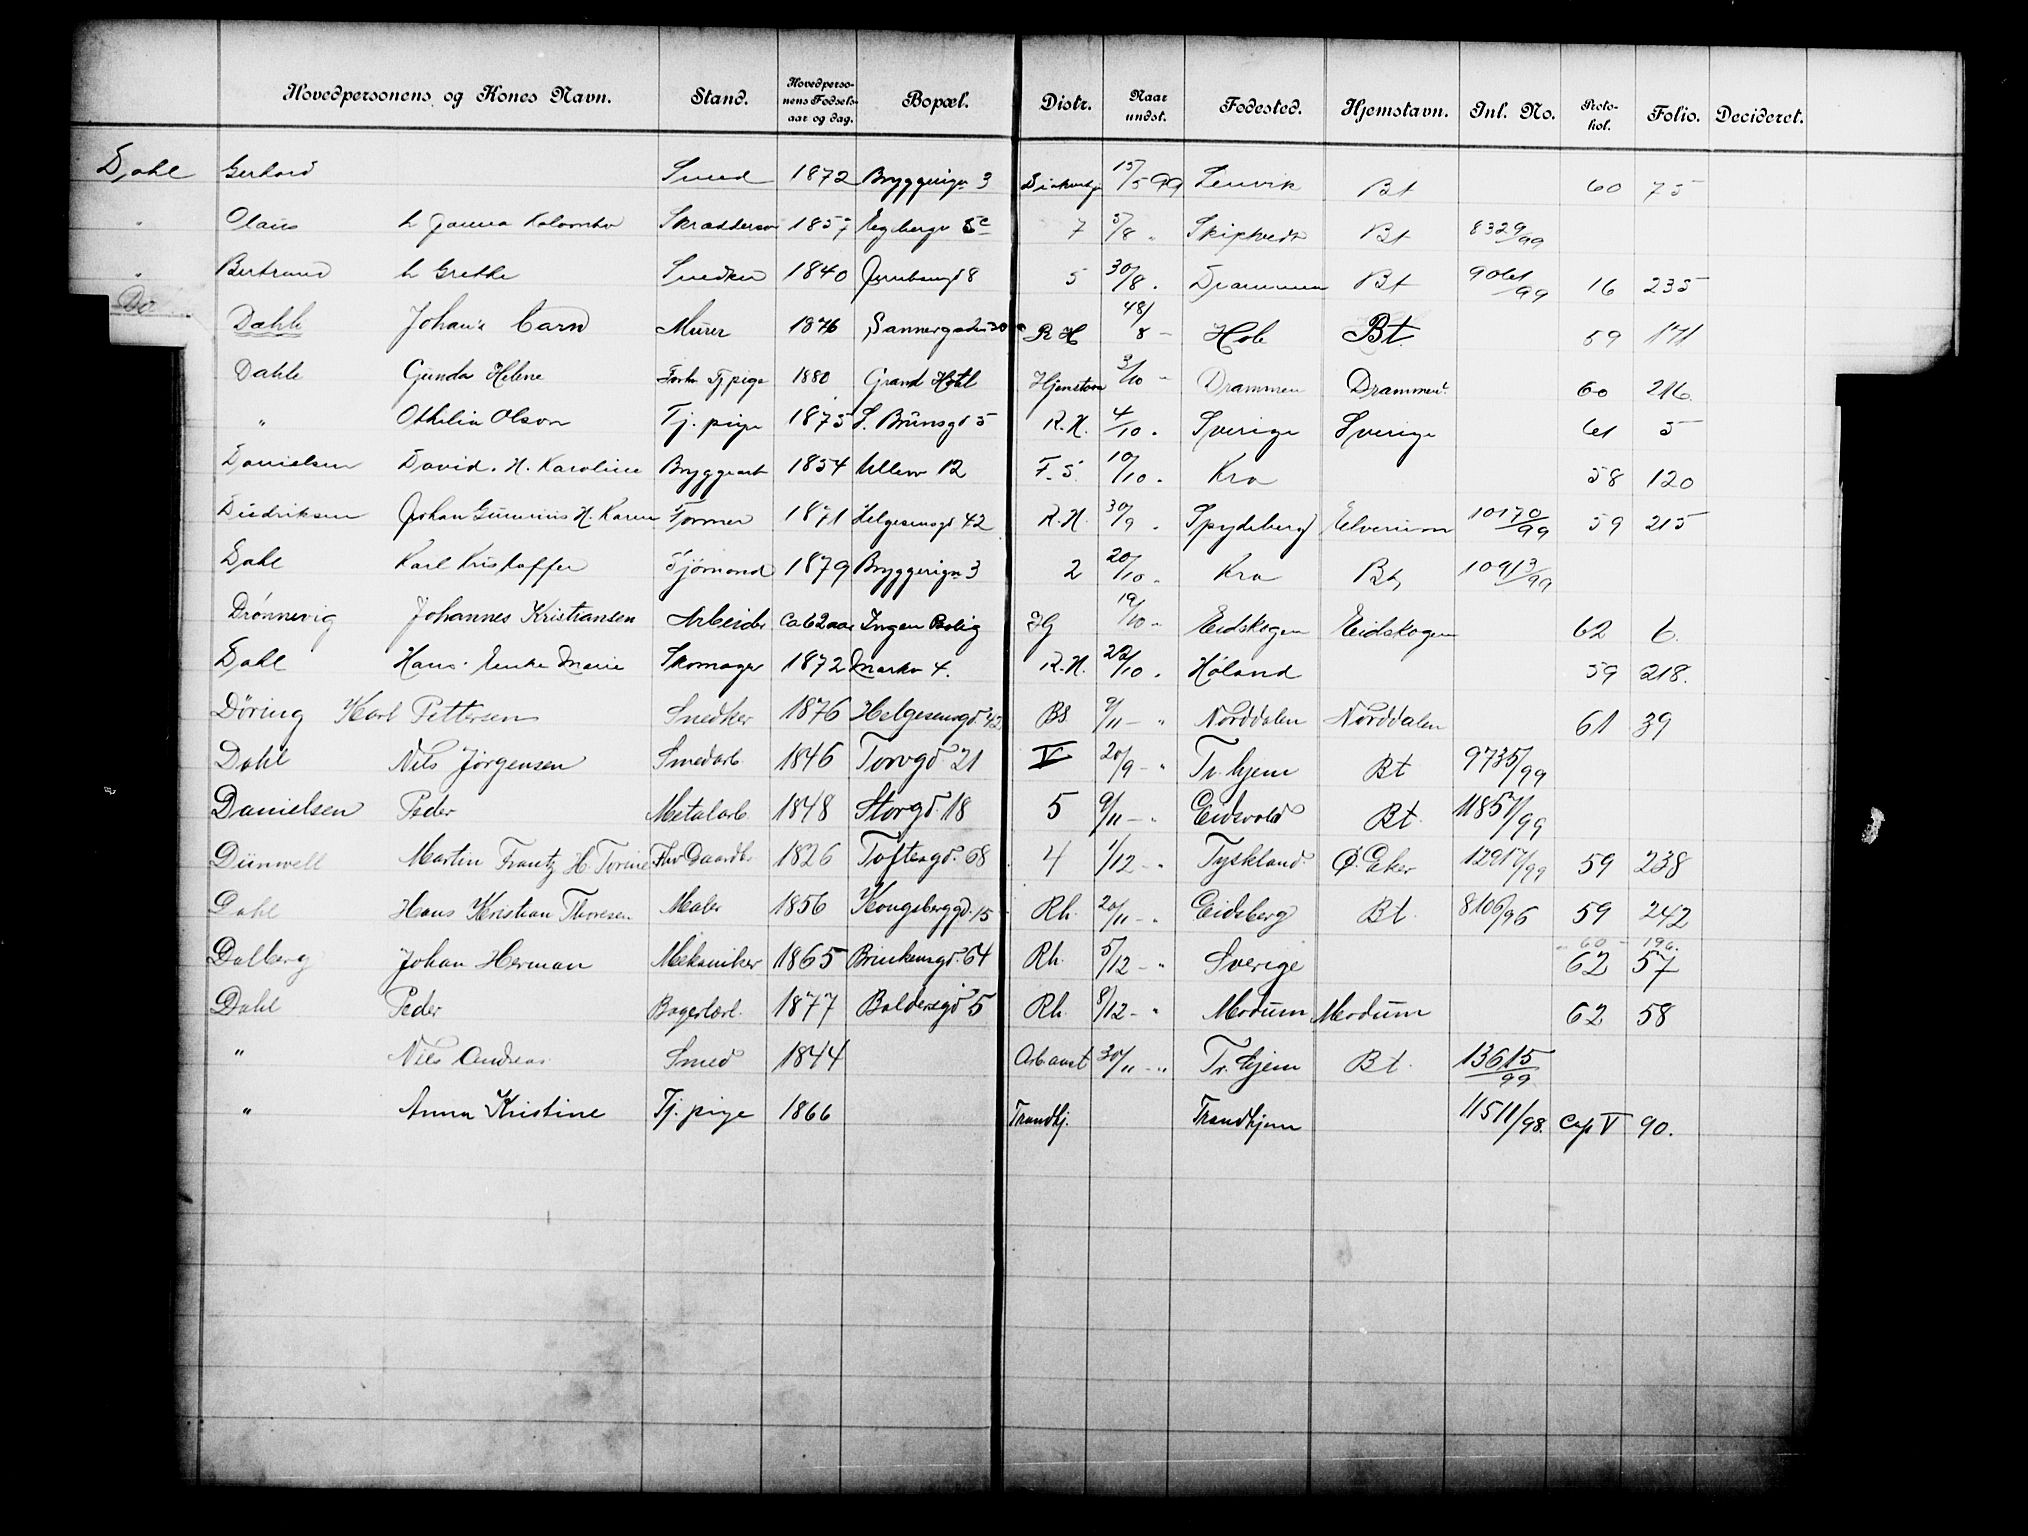 Hovedpersonens og Kones Navn. Stand. Hovedpersonens Fødselsaar og dag. Bopæl. Distr. Naar undst. Fødested. Hjemstavn. Inl. No. Protokol. Folio. Decideret.
Dahl Gerhard Smed 1872 Bryggerign 3 15/5 99 Lenvik Bt 60 75
" Olaus h Janna Skrædder 1857 Eegbergv 5c 7 5/8 " Skiptvedt Bt 8329/99
" Bertrand h Grethe Snedker 1840 8 5 30/8 " Drammen Bt 9061/99 16 235
Dahle Johan Murer 1876 Sannergaden 30 R H 8 – Hob Bt. 59 171
Dahle Gunda Helene Forh. Tj pige 1880 Grand Hotel Hjemstavn 3/10 – Drammen Drammen 60 216.
" Othilia Olson Tj. pige 1875 S. Brünsgd 5 R.H. 4/10 " Sverige Sverige 61 5
Danielsen David. H. Karoline Bryggearb 1854 Ullerv 12 F. 5. 10/10 " Kra 58 120
Diedriksen Johan H. Karen Former 1871 Helgesensgd 42 R.H. 30/9 " Spydeberg Elverum 10170/99 59 215
Dahl Karl Kristoffer Sjømand 1879 Bryggerign 3 2 20/10 " Kra Bt, 10913/99
Drönnevig Johannes Kristiansen Arbeider Ca 62 aar Ingen Bolig 19/10 – Eidskogen Eidskogen 62 6.
Dahl Hans. Marie Skomager 1872 Markv 4. R.H. 22/10 " Høland 59 218.
Döring Karl Pettersen Snedker 1876 Helgesensgd 42 Bs. 9/11 – " Norddalen Norddalen 61 39
Dahl Nils Jörgensen Smedarb. 1846 Torvgd 21 V 20/9 – " Tr. hjem Bt 9735/99
Danielsen Peder Metalarb. 1848 Storgd. 18 5 9/11 – " Eidsvold Bt. 11857/99
Dünwell Martin Frantz H. Torine 1826 Toftesgd. 68 4 1/12 – " Tyskland. Ø. Eker 12917/99 59 238
Dahl Hans Kristian Thoresen Maler 1856 Kongsberggd. 15 Rh. 20/11 – " Eidsberg Bt. 8106/96 59 242
Dalberg Johan Herman Mekaniker 1865 Brinkensgd. 64 Rh. 5/12 – " Sverige 60 – 196. 62 57
Dahl Peder Bagerlærl. 1877 Baldersgd 5 Rh. 8/12 – " Modum Modum 62 58
" Nils Andreas Smed 1844 Arb.anst 30/11 – " Tr. hjem Bt. 13615/99
" Anna Kristine Tj. pige 1866 Trondhj. Trondhjem 11511/98. Cap V 90.